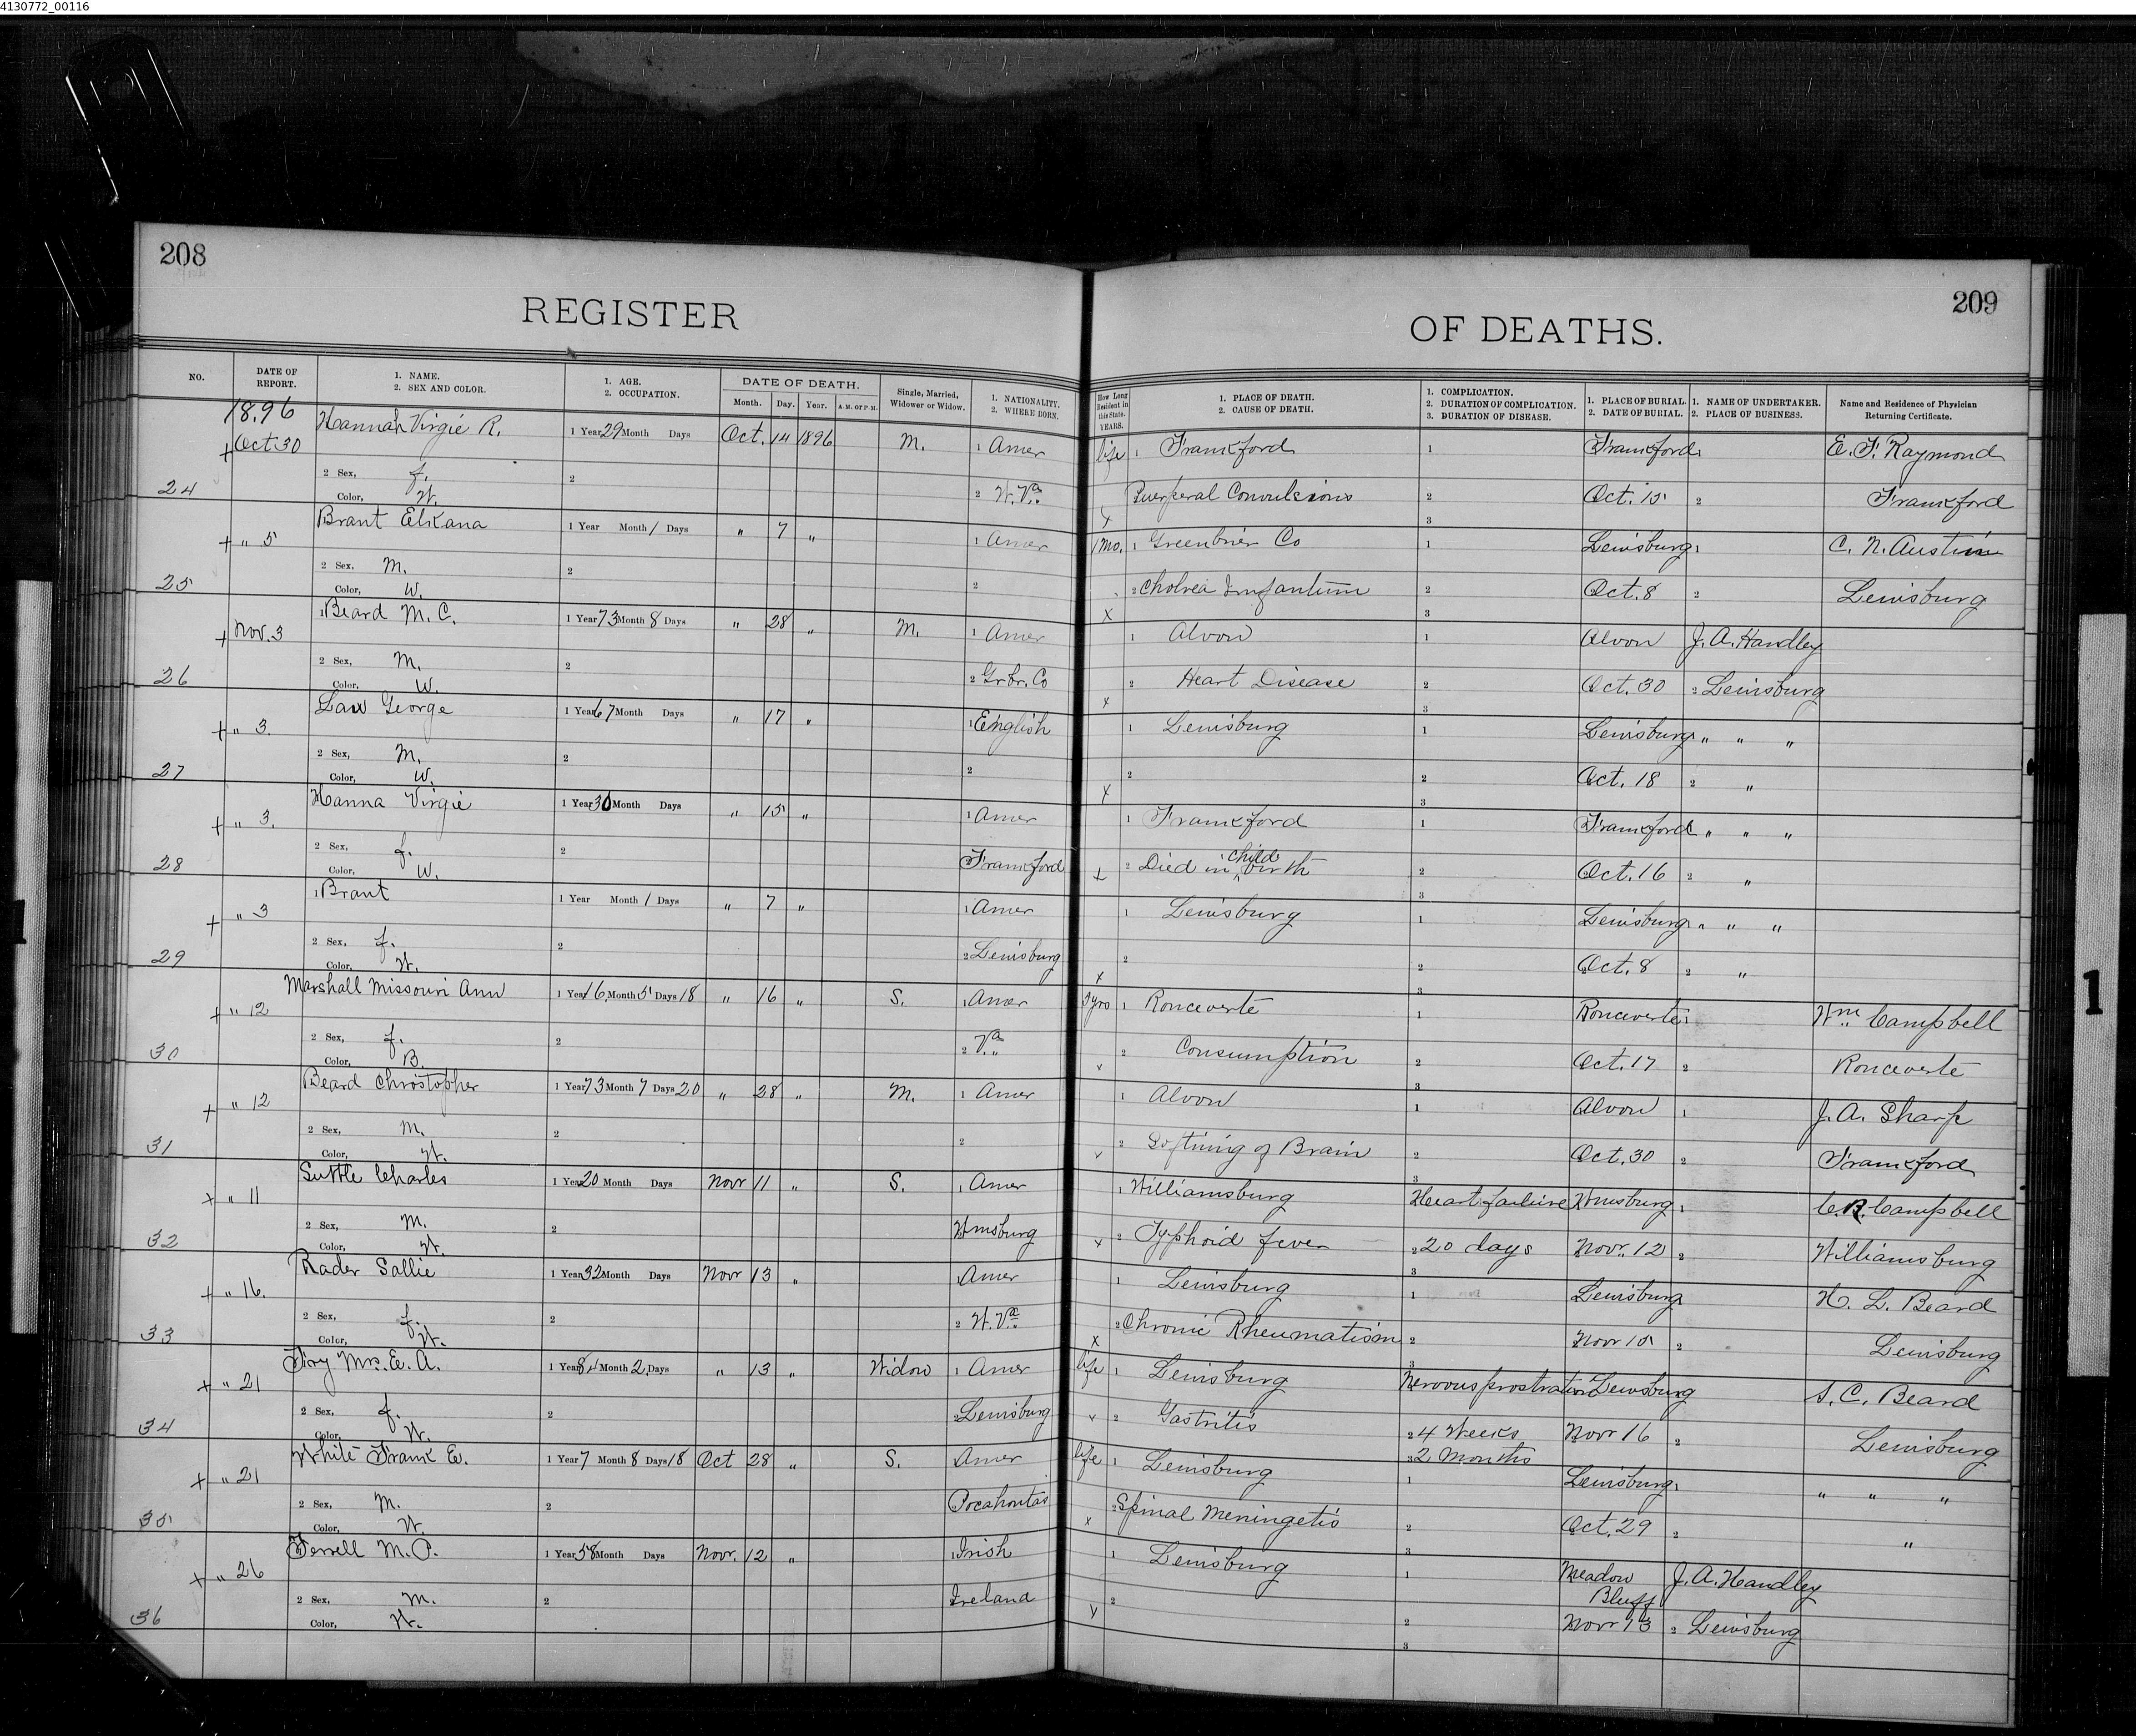 4130772_00116
208
REGISTER
NO.
DATE OF REPORT.
1. NAME.
2. SEX AND COLOR.
1. AGE.
2. OCCUPATION.
DATE OF DEATH.
Month. Day. Year. A.M. or P.M.
Single, Married, Widower or Widow.
1. NATIONALITY.
2. WHERE BORN.
209
OF DEATHS.
How Long Resident in this State. YEARS.
1. PLACE OF DEATH.
2. CAUSE OF DEATH.
1. COMPLICATION.
2. DURATION OF COMPLICATION.
3. DURATION OF DISEASE.
1. PLACE OF BURIAL.
2. DATE OF BURIAL.
1. NAME OF UNDERTAKER.
2. PLACE OF BUSINESS.
Name and Residence of Physician Returning Certificate.
1896
+ Oct 30 Hannah Virgie R. 1 Year 29 Month Days Oct. 14 1896 M. 1 Amer life 1 Frankford 1 Frankford 1 E. F. Raymond
24 2 Sex, f. Color, W. 2 2 W. Va. x Puerperal Convulsions 2 3 Oct. 15 2 Frankford
+ " 5 Brant Elkana 1 Year Month 1 Days " 7 " 1 Amer 1 mo. 1 Greenbrier Co 1 Lewisburg 1 C. N. Austin
25 2 Sex, M. Color, W. 2 2 x 2 Cholrea Infantum 2 3 Oct. 8 2 Lewisburg
+ Nov. 3 1 Beard M. C. 1 Year 73 Month 8 Days " 28 " M. 1 Amer 1 Alvon 1 Alvon J. A. Handley
26 2 Sex, M. Color, W. 2 2 Grbr. Co x 2 Heart Disease 2 3 Oct. 30 2 Lewisburg
+ " 3. Law George 1 Year 67 Month Days " 17 " 1 English 1 Lewisburg 1 Lewisburg " " "
27 2 Sex, M. Color, W. 2 2 x 2 2 3 Oct. 18 2 "
+ " 3. Hanna Virgie 1 Year 30 Month Days " 15 " 1 Amer 1 Frankford 1 Frankford " " "
28 2 Sex, f. Color, W. 2 Frankford + 2 Died in child birth 2 3 Oct. 16 2 "
+ " 3 1 Brant 1 Year Month 1 Days " 7 " 1 Amer 1 Lewisburg 1 Lewisburg " " "
29 2 Sex, f. Color, W. 2 2 Lewisburg x 2 2 3 Oct. 8 2 "
+ " 12 Marshall Missouri Ann 1 Year 16 Month 5 Days 18 " 16 " S. 1 Amer yrs 1 Ronceverte 1 Ronceverte 1 Wm. Campbell
30 2 Sex, f. Color, B. 2 2 Va. x 2 Consumption 2 3 Oct. 17 2 Ronceverte
+ " 12 Beard Christopher 1 Year 73 Month 7 Days 20 " 28 " M. 1 Amer 1 Alvon 1 Alvon 1 J. A. Sharp
31 2 Sex, M. Color, W. 2 2 2 Softining of Brain 2 3 Oct. 30 2 Frankford
+ " 11 Suttle Charles 1 Year 20 Month Days Novr 11 " S. 1 Amer 1 Williamsburg Heart failure Wmsburg 1 C. R. Campbell
32 2 Sex, M. Color, W. 2 Wmsburg x 2 Typhoid fever 2 20 days 3 Novr. 12 2 Williamsburg
+ " 16. Rader Sallie 1 Year 32 Month Days Novr 13 " 1 Amer 1 Lewisburg 1 Lewisburg H. L. Beard
33 2 Sex, f. Color, W. 2 2 W. Va. x 2 Chronic Rheumatism 2 3 Novr 15 2 Lewisburg
+ " 21 Mrs. E. A. 1 Year 84 Month 2 Days " 13 " Widow 1 Amer life 1 Lewisburg Nervous prostration Lewisburg S. C. Beard
34 2 Sex, f. Color, W. 2 2 Lewisburg x 2 Gastritis 2 4 Weeks 3 2 Months Novr 16 2 Lewisburg
+ " 21 White Frank E. 1 Year 7 Month 8 Days 18 Oct 28 " S. Amer life 1 Lewisburg 1 Lewisburg 1 " " "
35 2 Sex, M. Color, W. 2 Pocahontas x 2 Spinal Meningetis 2 3 Oct. 29 2 "
+ " 26 Ferrell M. P. 1 Year 58 Month Days Novr. 12 " 1 Irish 1 Lewisburg 1 Meadow Bluff J. A. Handley
36 2 Sex, M. Color, W. 2 Ireland x 2 2 3 Novr 13 2 Lewisburg
1